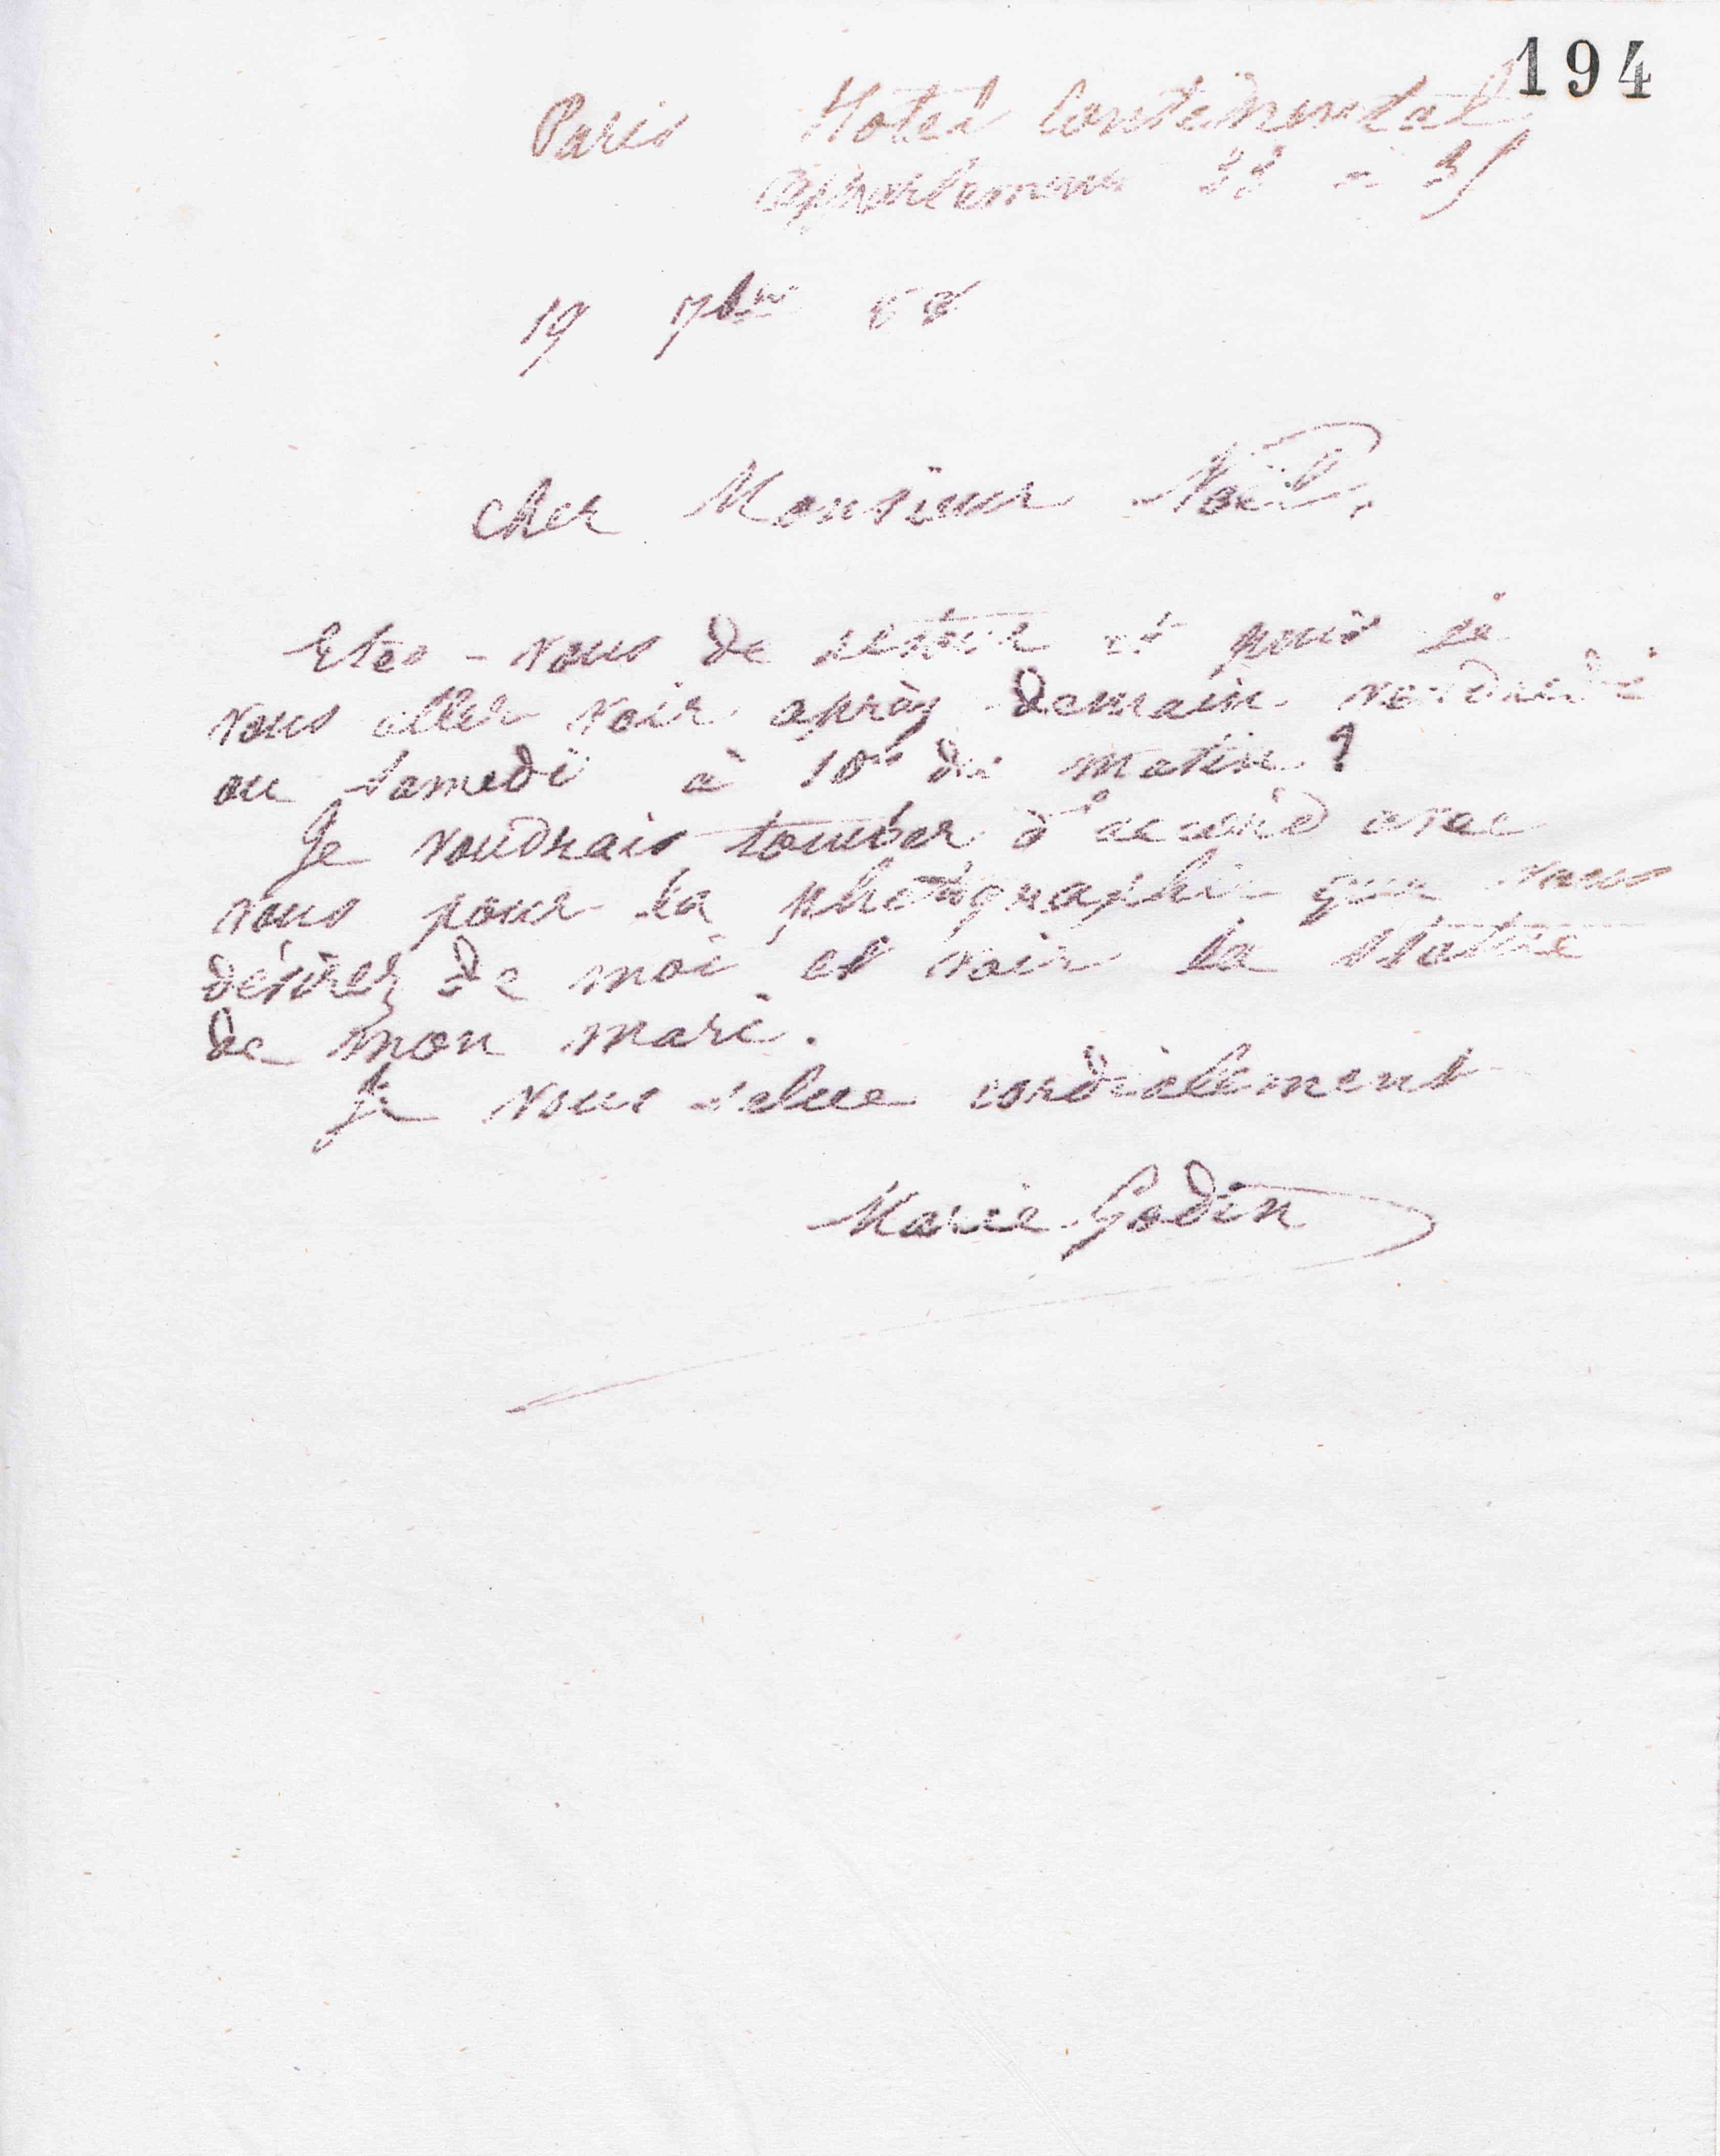 194
Paris Hotel Continental
appartement 33 - 35
19 7bre 88
Cher Monsieur Noël,
Etes-vous de retour et puis je
vous aller voir après demain vendredi
ou samedi à 10h du matin ?
Je voudrais tomber d'accord avec
vous pour la photographie que vous
désirez de moi et voir la statue
de mon mari.
Je vous salue cordialement
Marie Godin